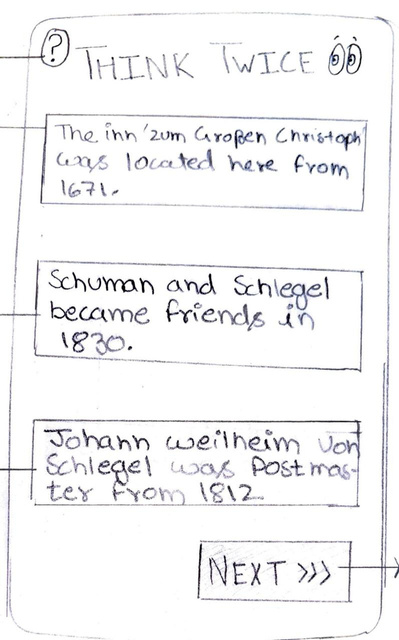 ?
THINK TWICE
The inn 'zum Großen Christoph'
was located here from
1671.
Schuman and Schlegel
became friends in
1830.
Johann weilheim von
Schlegel was Postmas-
ter from 1812
NEXT >>>